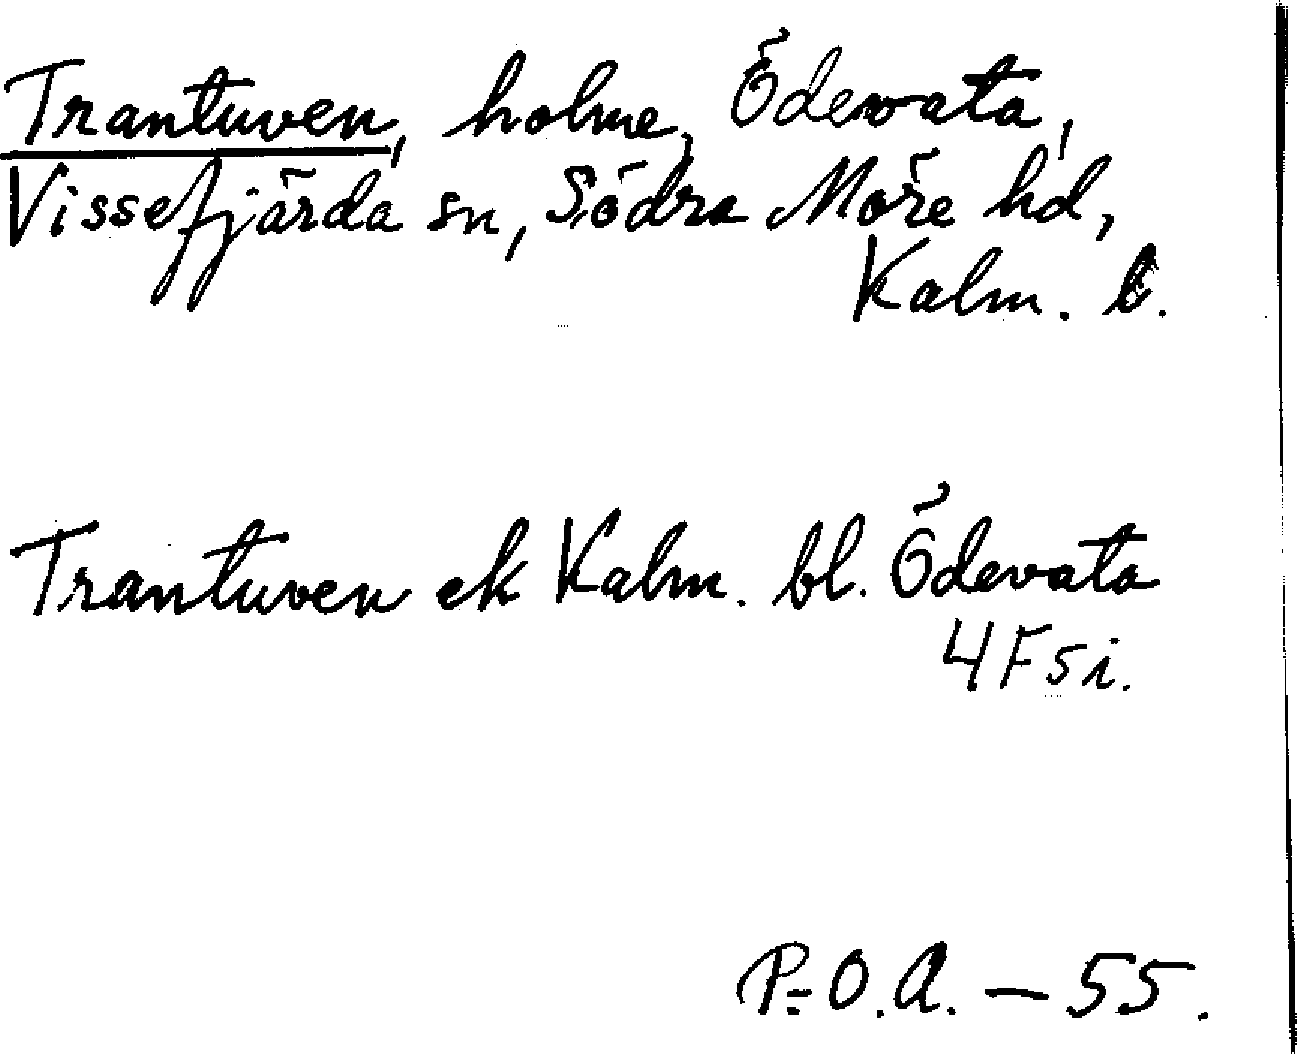 Trantuven, holme, Ödevata,
Vissefjärda sn, Södra Möre hd,
Kalm. l.
Trantuven ek Kalm. bl. Ödevata
4F5i.
P.O.A. – 55.